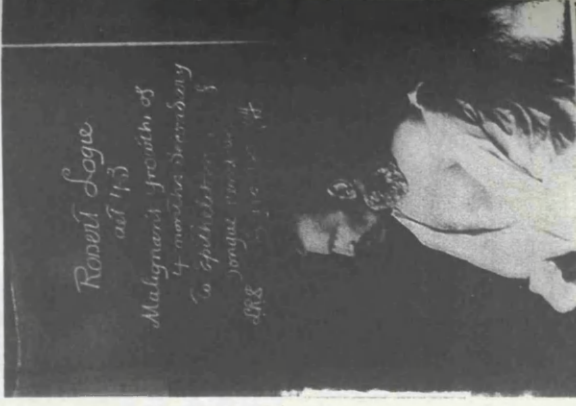 Robert Logie
aet 43
Malignant growths of
4 months secondary
to epithelioma of
tongue